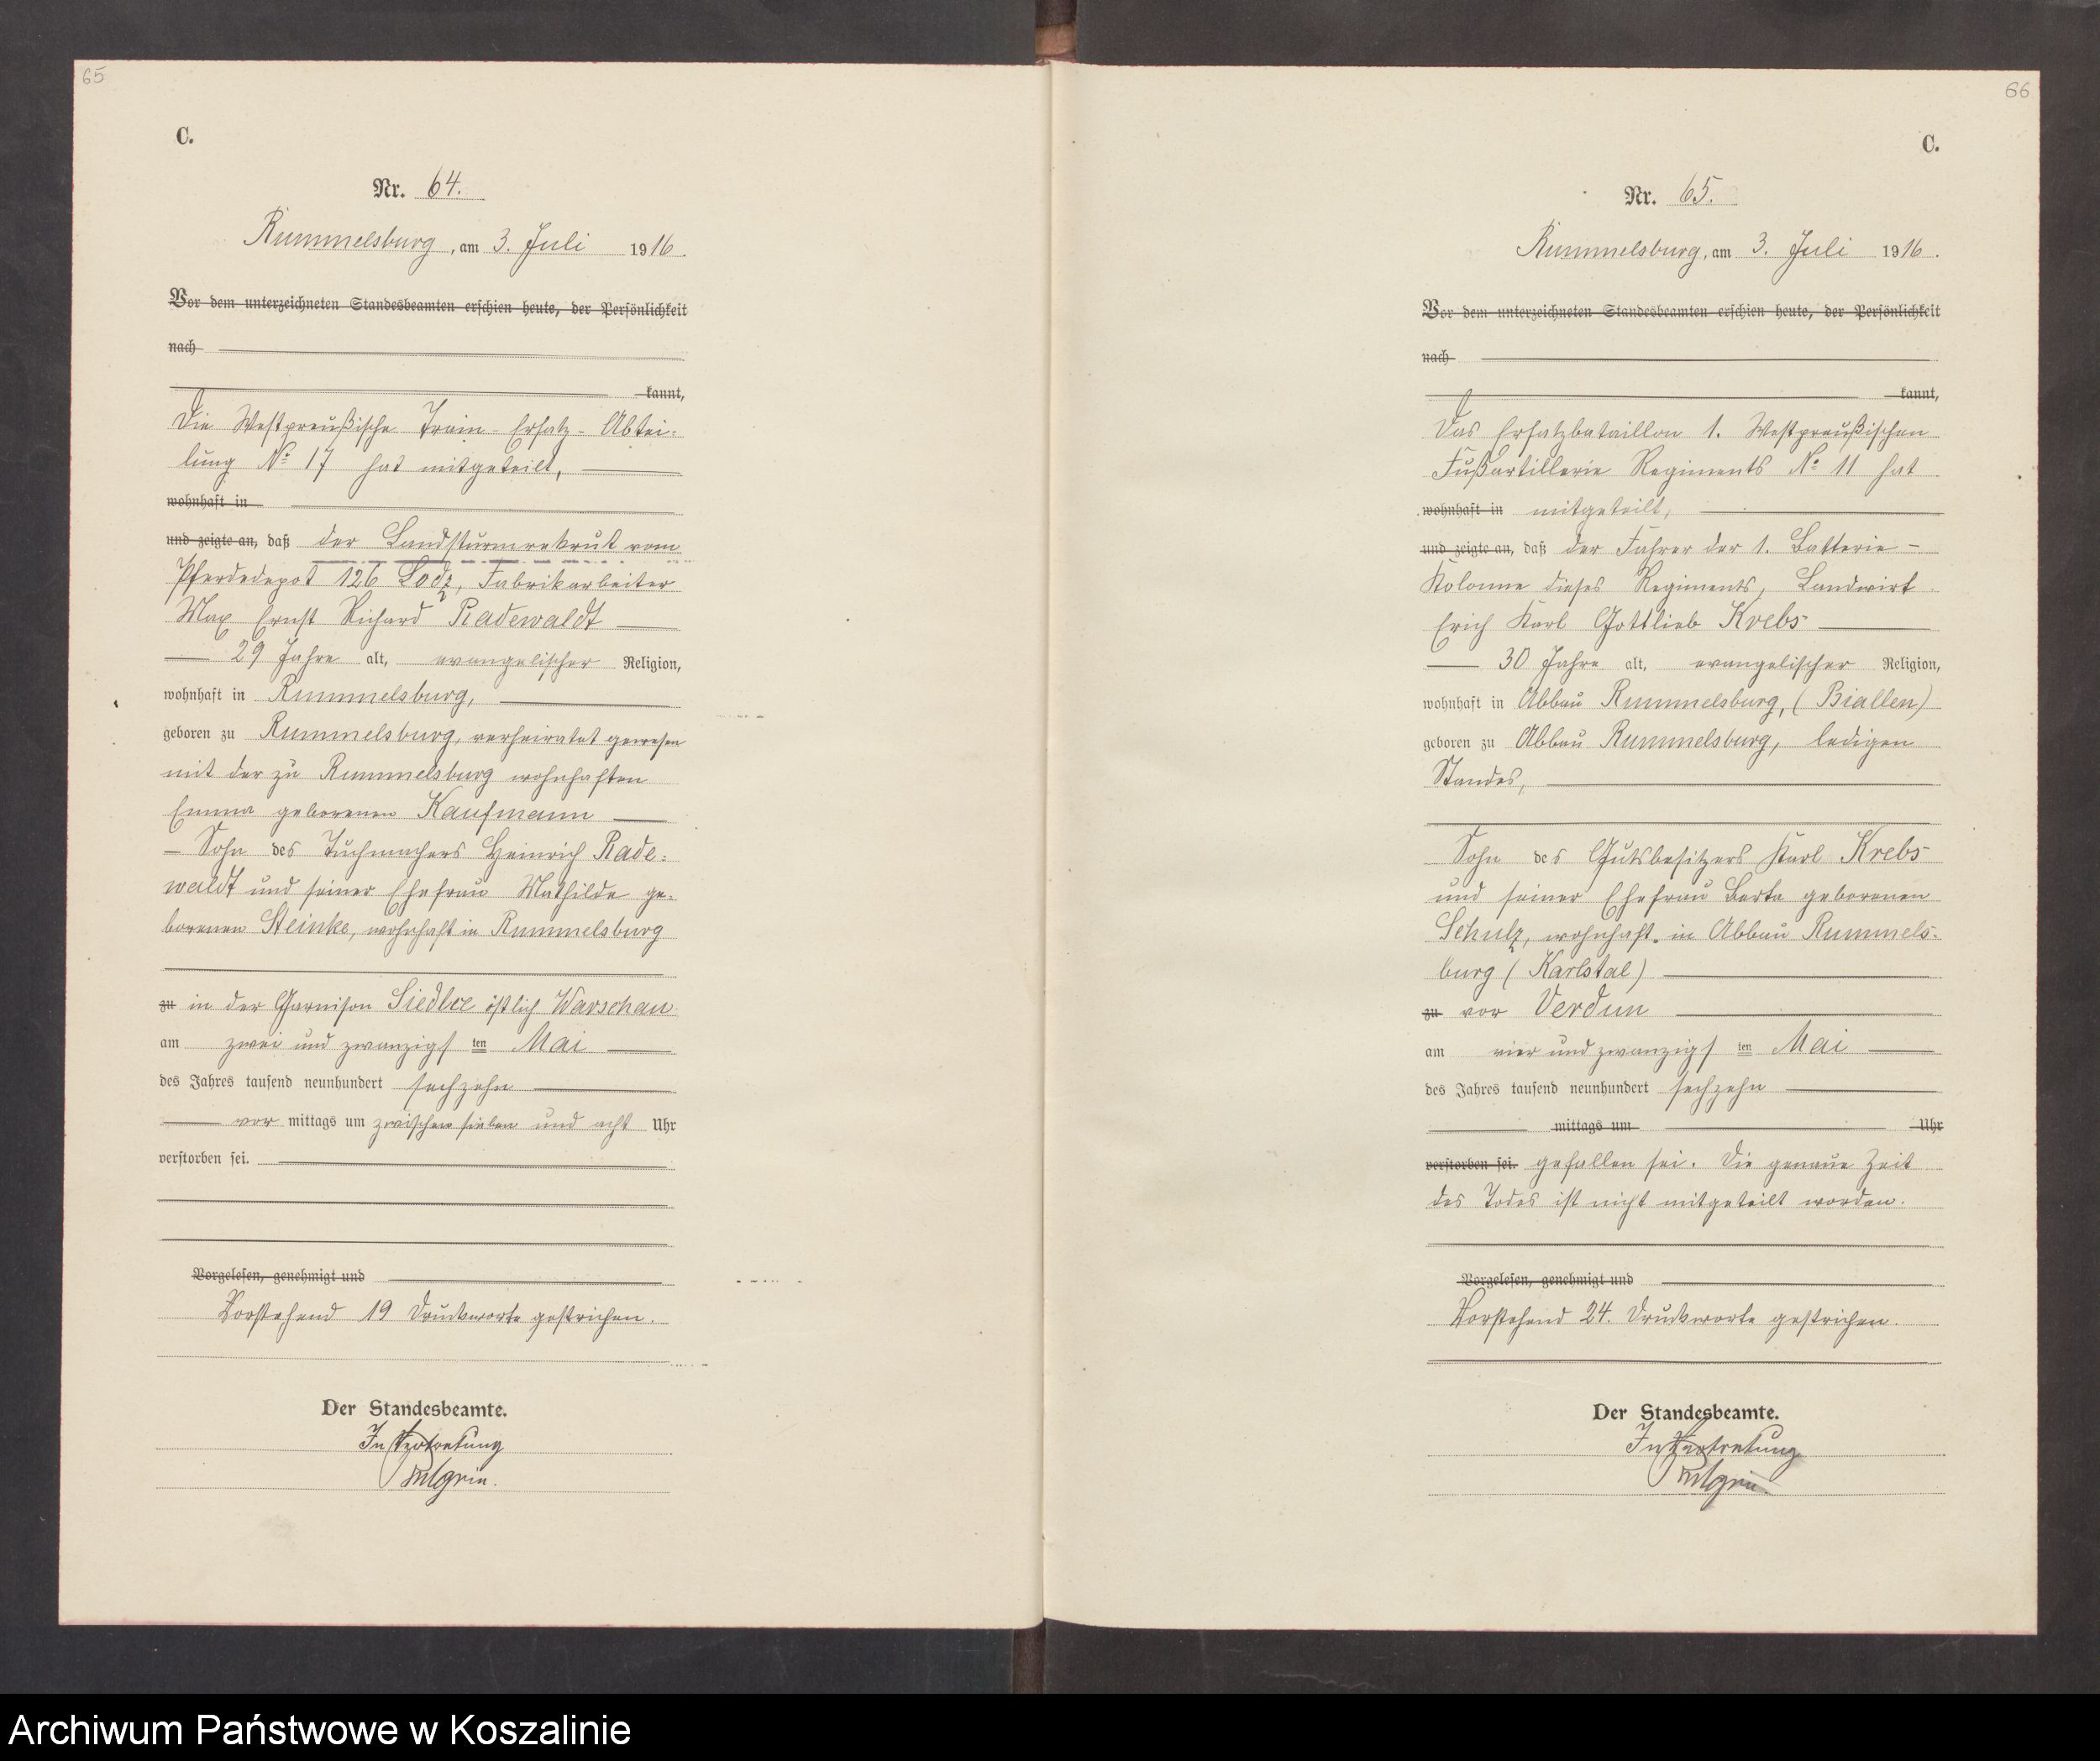 65
C.
Nr. 64.
Rummelsburg, am 3. Juli 1916.
Vor dem unterzeichneten Standesbeamten erschien heute, der Persönlichkeit
nach
kannt,
Die Westpreußische Train-Ersatz-Abtei-
lung No 17 hat mitgeteilt,
wohnhaft in
und zeigte an, daß der Landsturmrekrut vom
Pferdedepot 126 Lodz, Fabrikarbeiter
Max Ernst Richard Radewaldt
29 Jahre alt, evangelischer Religion,
wohnhaft in Rummelsburg,
geboren zu Rummelsburg, verheiratet gewesen
mit der zu Rummelsburg wohnhaften
Emma geborenen Kaufmann
Sohn des Tuchmachers Heinrich Rade-
waldt und seiner Ehefrau Mathilde ge-
borenen Steinke, wohnhaft in Rummelsburg
zu in der Garnison Siedlce östlich Warschau
am zwei und zwanzigsten Mai
des Jahres tausend neunhundert sechzehn
vor mittags um zwischen sieben und acht Uhr
verstorben sei.
Vorgelesen, genehmigt und
Vorstehend 19 Druckworte gestrichen.
Der Standesbeamte.
In Vertretung
66
C.
Nr. 65.
Rummelsburg, am 3. Juli 1916.
Vor dem unterzeichneten Standesbeamten erschien heute, der Persönlichkeit
nach
kannt,
Das Ersatzbataillon 1. Westpreußischen
Fußartillerie Regiments No 11 hat
wohnhaft in mitgeteilt,
und zeigte an, daß der Fahrer der 1. Batterie-
Kolonne dieses Regiments, Landwirt
Erich Karl Gottlieb Krebs
30 Jahre alt, evangelischer Religion,
wohnhaft in Abbau Rummelsburg, (Biallen)
geboren zu Abbau Rummelsburg, ledigen
Standes,
Sohn des Gutsbesitzers Karl Krebs
und seiner Ehefrau Berta geborenen
Schulz, wohnhaft in Abbau Rummels-
burg (Karlstal)
zu vor Verdun
am vier und zwanzigsten Mai
des Jahres tausend neunhundert sechzehn
mittags um Uhr
verstorben sei. gefallen sei. Die genaue Zeit
des Todes ist nicht mitgeteilt worden.
Vorgelesen, genehmigt und
Vorstehend 24. Druckworte gestrichen.
Der Standesbeamte.
In Vertretung
Archiwum Państwowe w Koszalinie